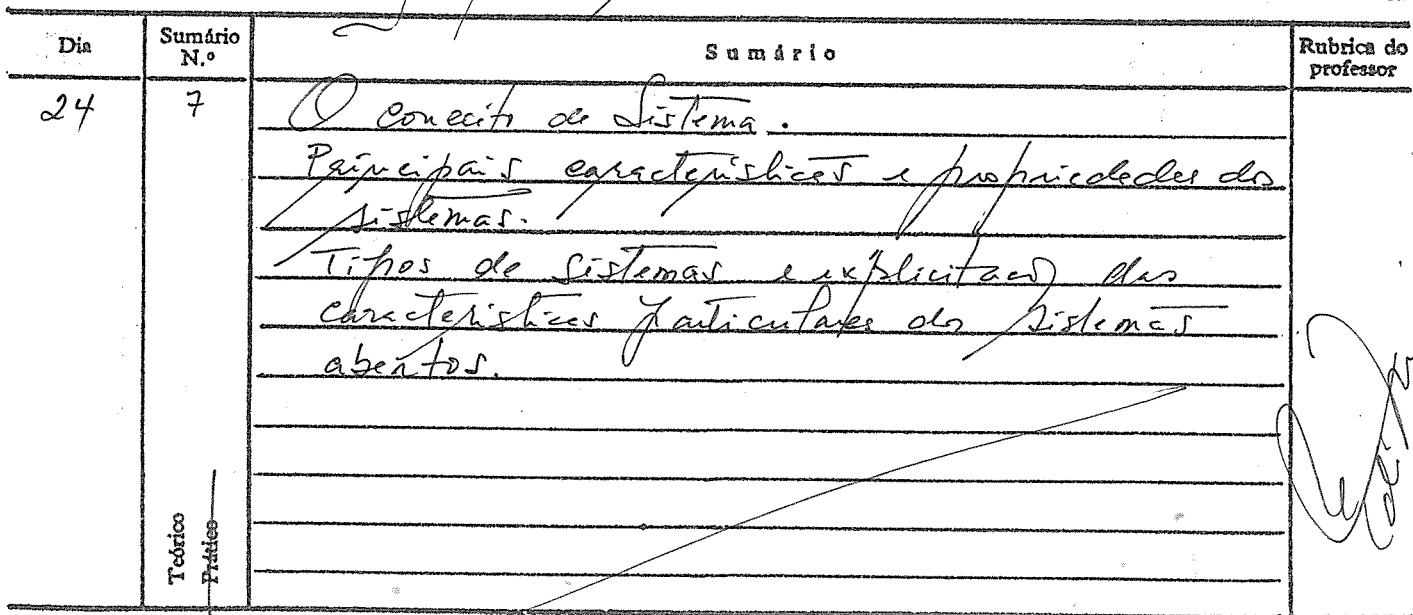 Dia Sumário N.º Sumário Rubrica do professor
24 7 O conceito de Sistema.
Principais características e propriedades dos
sistemas.
Tipos de sistemas e explicitação das
características particulares dos sistemas
abertos.
Teórico
Prático